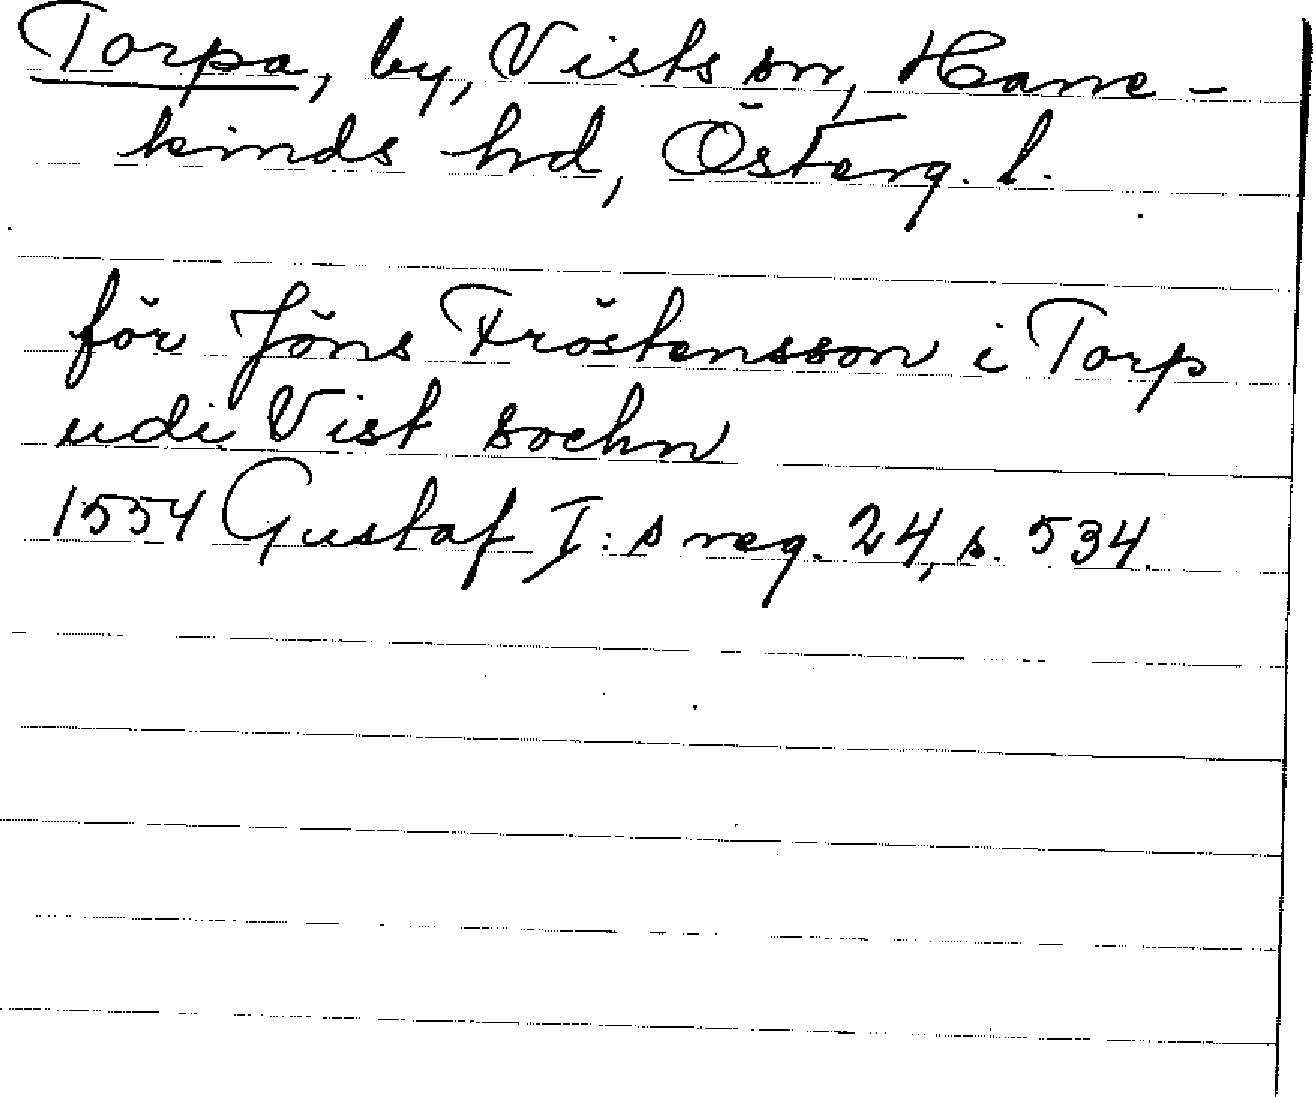 Torpa, by, Vists sn, Hane-
kinds hd, Österg. l.
för Jöns Tröstensson i Torp
udi Vist sochn
1554 Gustaf I:s reg. 24, s. 534.